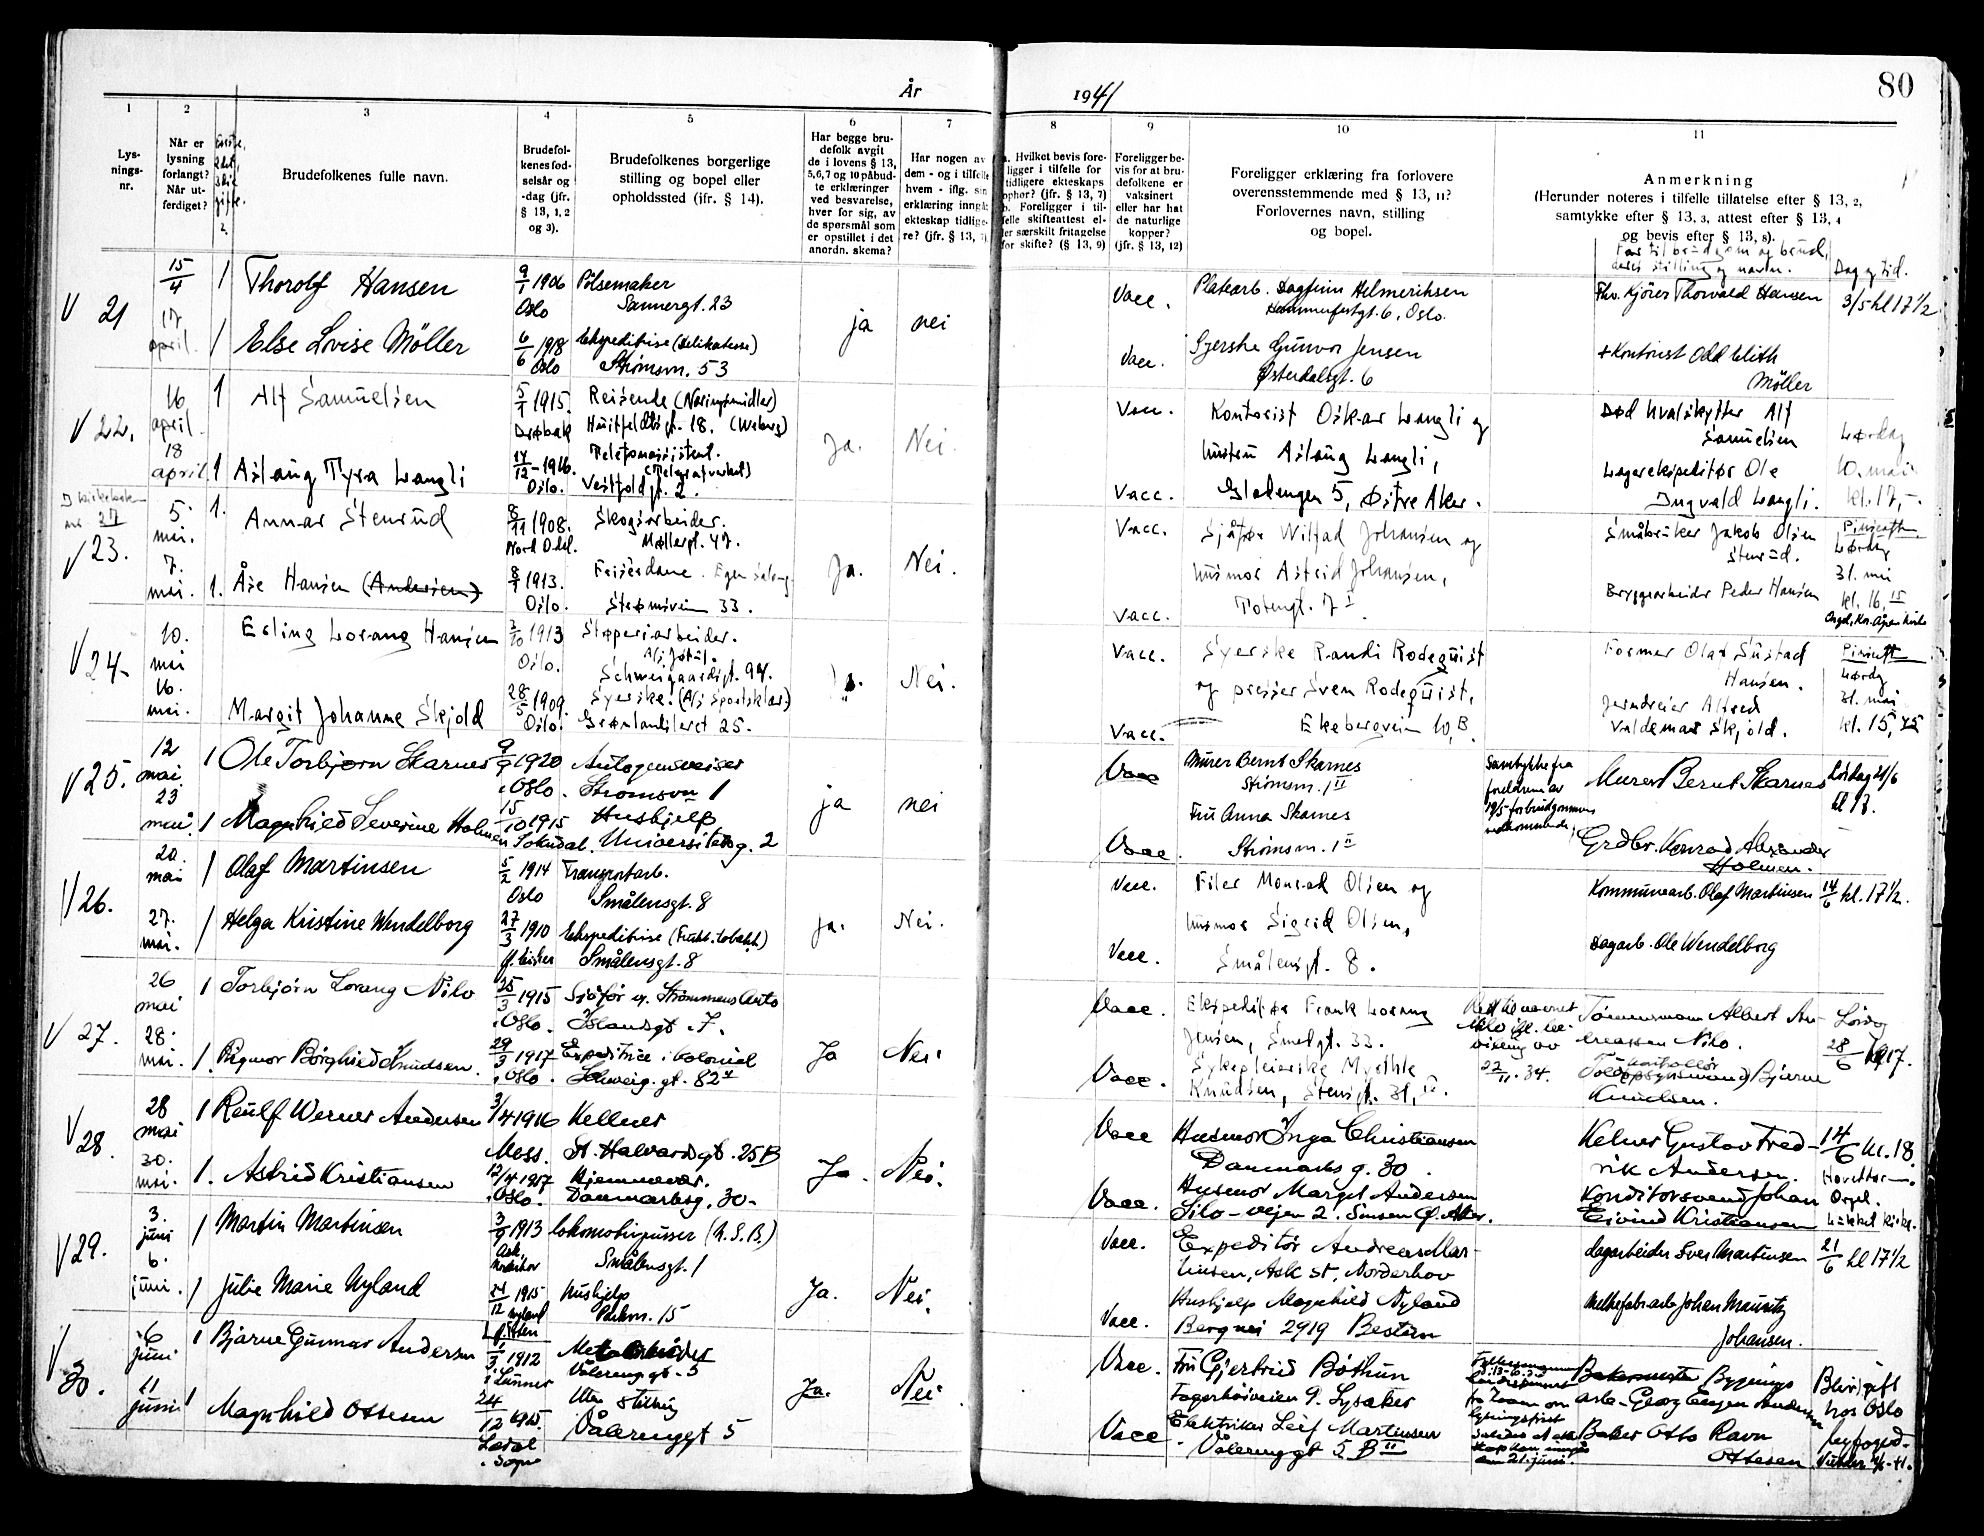 80
År 1941
1
Lysningsnr.
2
Når er lysning forlangt? Når utferdiget?
3
Brudefolkenes fulle navn.
4
Brudefolkenes fødselsår og -dag (jfr. § 13, 1, 2 og 3).
5
Brudefolkenes borgerlige stilling og bopel eller opholdssted (ifr. § 14).
6
Har begge brudefolk avgit de i lovens § 13, 5, 6, 7 og 10 påbudte erklæringer ved besvarelse, hver for sig, av de spørsmål som er opstillet i det anordn. skema?
7
Har nogen av dem - og i tilfelle hvem - iflg. sin erklæring inngått ekteskap tidligere? (jfr. § 13,
8
Hvilket bevis foreligger i tilfelle for tidligere ekteskaps ophør? (jfr. § 13, 7)
b. Foreligger i tilfelle skifteattest eller særskilt fritagelse for skifte? (§ 13, 9)
9
Foreligger bevis for at brudefolkene er vaksinert eller har hat de naturlige kopper? (jfr. § 13, 12)
10
Foreligger erklæring fra forlovere overensstemmende med § 13, 11?
Forlovernes navn, stilling og bopel.
11
Anmerkning
(Herunder noteres i tilfelle tillatelse efter § 13, 2, samtykke efter § 13, 3, attest efter § 13, 4 og bevis efter § 13, 8).
Far til brudgom og brud, deres stilling og navn.
Dag og tid.
V 21
15/4
1 Thorolf Hansen
9/1 1906 Oslo
Pölsemaker
Sannergt. 23
ja
nei
Vacc.
Platearb. Dagfinn Helmeriksen
Hammerfestgt. 6, Oslo.
Fhv. Kjörer Thorvald Hansen
3/5 kl 17 1/2
17 april
1 Else Lovise Möller
6/6 1918 Oslo
Ekspeditrise (delikatesse)
Strömsv. 53
Vacc.
Syerske Gunvor Jensen
Østerdalsgt. 6
+ Kontorist Odd Möller
V 22.
16 april
1 Alf Samuelsen
1915. Drøbak
Reisende (Næringsmidler)
Huitfeldtsgt. 18.
Ja.
Nei.
Vacc.
Kontorist Oskar Langli og
hustru Aslaug Langli,
Gladengen 5, Østre Aker.
Død hvalskytter Alf
Samuelsen
Lørdag
10. mai
kl. 17,-
18 april
1 Aslaug Tyra Langli
17/12 - 1916. Oslo.
Telefonassistent.
(Telegrafverket)
Vestfoldgt. 2.
Vacc.
Lagerekspeditør Ole
Ingvald Langli.
nr. 27
V 23.
5. mai.
1. Annar Stenrud
8/11 1908. Nord Odal.
Skogsarbeider.
Møllergt. 47.
Ja.
Nei.
Vacc.
Sjåfør Wilfad Johansen og
husmor Astrid Johansen,
Totengt. 7 I
Småbruker Jakob Olsen
Stenrud.
Pinseaften
Lørdag
31. mai
kl. 16,15
7. mai.
1. Åse Hansen (Andersen)
1913. Oslo.
Friserdame. Egen salong
Strømsvein 33.
Vacc.
Bryggearbeider Peder Hansen
V 24
10. mai
Erling Lorang Hansen
1913 Oslo.
Støperiarbeider.
A/S Jøtul.
Schweigaardsgt. 94.
Ja.
Nei.
Vacc.
Syerske Randi Rodequist
og presser Sven Rodequist,
Ekebergvein 10, B.
Former Olaf Sustad
Hansen.
Pinseaften
Lørdag
31. mai
kl. 15,45
16. mai.
Margit Johanne Skjold
28/5 1909. Oslo.
Syerske. (A/S Sportsklær)
Grønlandsleret 25.
Vacc.
Jerndreier Alfred
Valdemar Skjold.
V 25.
12 mai
1 Ole Torbjørn Skarnes
1920 Oslo.
Autogensveiser
Strömsvn 1
ja
nei
Vacc
Murer Bernt Skarnes
Strömsv. 1 II
Fru Anna Skarnes
Strömsv. 1 II
Samtykke fra
foreldrene av
19/5 for brudgommens
vedkommende,
Murer Bernt Skarnes
Lördag 21/6
kl 18.
23 mai.
1 Magnhild Severine Holmen
15/10 1915 Sokndal.
Hushjelp
Universitetsg. 2
Vacc.
Grdbr. Konrad Alexander
Holmen.
V 26.
20. mai
1 Olaf Martinsen
5/2 1914 Oslo
Transportarb.
Smålensgt. 8
Ja.
Nei.
Vacc.
Filer Monrad Olsen og
husmor Sigrid Olsen,
Smålensgt. 8.
Kommunearb. Olaf Martinsen
14/6 kl. 17 1/2.
27. mai.
1 Helga Kristine Wendelborg
27/3 1910
Ekspeditrise (Frukt. tobakk)
Smålensgt. 8
Vacc.
Dagarb. Ole Wendelborg
V 27.
26 mai
1 Torbjörn Lorang Nilo
25/3 1915 Oslo.
Sjåför v. Strömmens Auto
Islandsgt. 7.
Ja
Nei
Vacc.
Ekspeditør Frank Lorang
Jensen, Smedgt. 33.
Sykepleierske Myrthle
Knudsen, Stensgt. 31, IV.
22/11. 34.
Tömmermann Albert Andreassen Nilo.
Lördag
28/6 kl 17.
28. mai.
1 Ragmor Borghild Knudsen.
29/3 1917 Oslo.
Expeditrice i kolonial
Schweig.gt. 82 II
Vacc.
kontrollör
Bjarne
Knudsen.
V 28.
28 mai
1 Raulf Werner Andersen
3/4 1916 Moss.
Kellner
St. Halvardsgt. 25 B
Ja.
Nei.
Vacc
Husmor Inga Christiansen
Danmarks g. 30.
Husmor Margit Andersen
Silo-vejen 2. Sinsen Ø. Aker.
Kelner Gustav Fredrik Andersen.
14/6 kl. 18.
30. mai.
1. Astrid Kristiansen
12/4 1917 Oslo.
Hjemmevær.
Danmarksg. 30-
Vacc.
Konditorsvend Johan
Eivind Kristiansen
V 29.
3. juni
1 Martin Martinsen
3/9 1913
Ask, Norderhov
Lokomotivpusser (N.S.B.)
Smålensgt. 1
Ja.
Nei.
Vacc.
Expeditör Andreas Martinsen, Ask st, Norderhov
Hushjelp Magnhild Nyland
Bergvei 2919 Bestum
Dagarbeider Sven Martinsen
21/6 kl 17 1/2
6. juni.
1 Julie Marie Nyland
24/12 1915
Hushjelp
Vacc.
Melkefabr.arb. Johan Mauritz
Johansen.
V 30.
6 juni
1 Bjarne Gunnar Andersen
1912
Lunner
Metallarbeider
Vålerenggt. 5
Ja.
Nei
Vacc.
Fru Gjertrud Böthun
Fagerhöiveien 9. Lysaker
Elektriker Leif Martinsen
Vålerenggt 5 B II
Bygningsarb. Georg Eugen Andersen
Blir gift
hos Oslo
byfoged-
11 juni
1 Magnhild Ottesen
24/12 1915
Lærdal
Sogn
Uten stilling
Vålerenggt 5
Vacc
Baker Otto Ravn
Ottesen